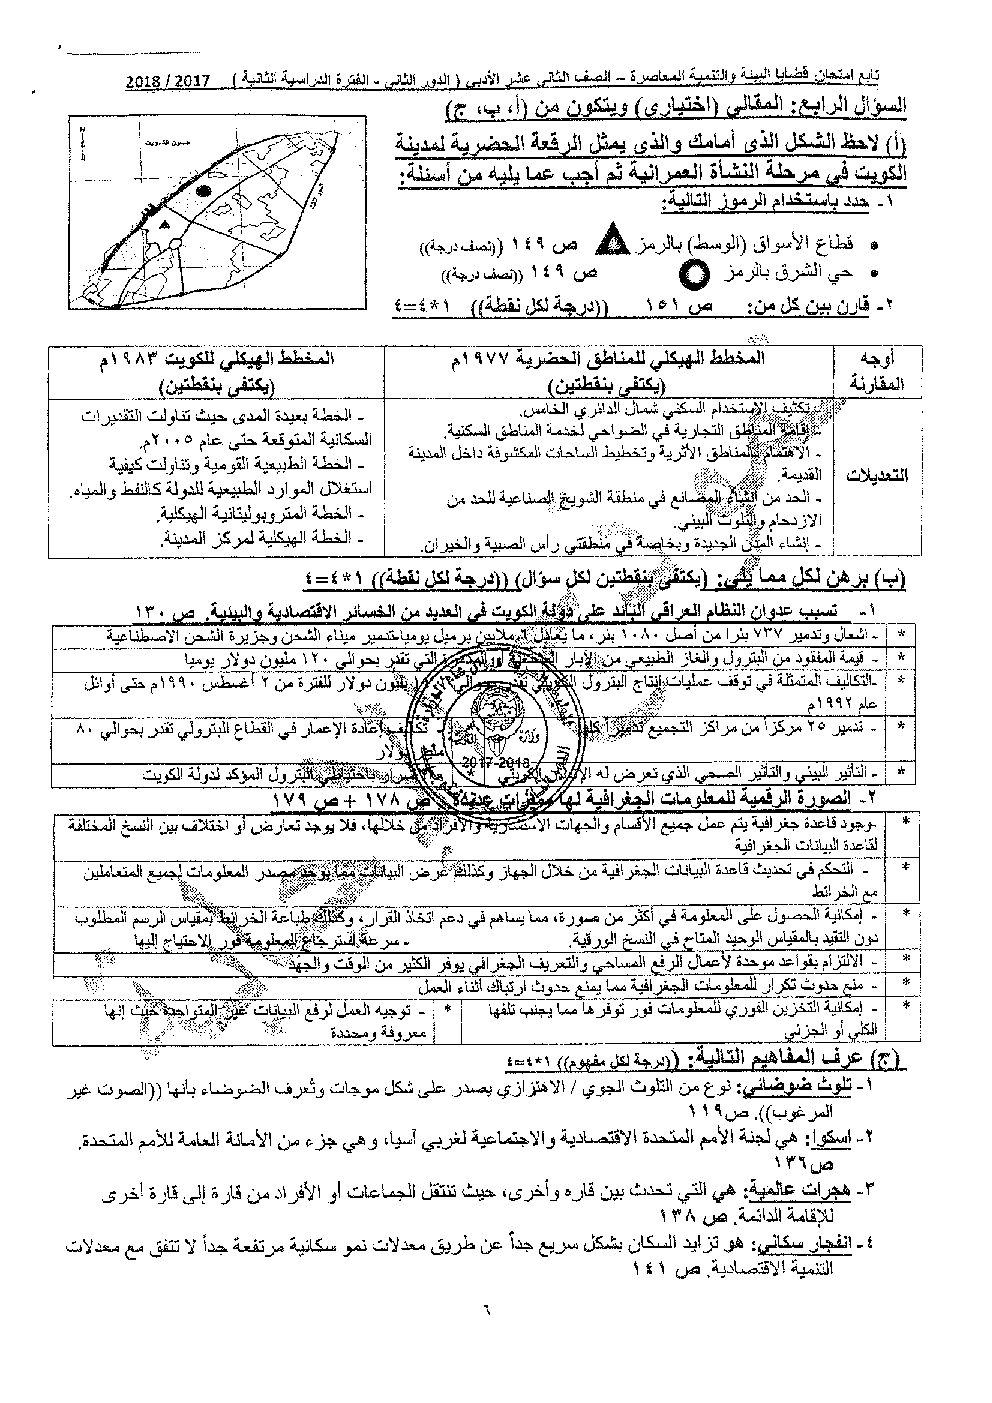 تابع امتحان قضايا البيئة والتنمية المعاصرة – الصف الثاني عشر الأدبي ( الدور الثاني - الفترة الدراسية الثانية ) 2017 / 2018
السؤال الرابع: المقالي (اختياري) ويتكون من (أ، ب، ج)
(أ) لاحظ الشكل الذي أمامك والذي يمثل الرقعة الحضرية لمدينة
الكويت في مرحلة النشأة العمرانية ثم أجب عما يليه من أسئلة:
١- حدد باستخدام الرموز التالية:
• قطاع الأسواق (الوسط) بالرمز ص ١٤٩ ((نصف درجة))
• حي الشرق بالرمز ص ١٤٩ ((نصف درجة))
٢- قارن بين كل من: ص ١٥١ ((درجة لكل نقطة)) ١*٤=٤
أوجه المقارنة
المخطط الهيكلي للمناطق الحضرية ١٩٧٧م
(يكتفى بنقطتين)
المخطط الهيكلي للكويت ١٩٨٣م
(يكتفى بنقطتين)
التعديلات
- تكثيف الاستخدام السكني شمال الدائري الخامس.
- إقامة المناطق التجارية في الضواحي لخدمة المناطق السكنية.
- الاهتمام بالمناطق الأثرية وتخطيط الساحات المكشوفة داخل المدينة
القديمة.
- الحد من إنشاء المصانع في منطقة الشويخ الصناعية للحد من
الازدحام والتلوث البيئي.
- إنشاء المدن الجديدة وبخاصة في منطقتي رأس الصبية والخيران.
- الخطة بعيدة المدى حيث تناولت التقديرات
السكانية المتوقعة حتى عام ٢٠٠٥م.
- الخطة الطبيعية القومية وتناولت كيفية
استغلال الموارد الطبيعية للدولة كالنفط والمياه.
- الخطة المتروبوليتانية الهيكلية.
- الخطة الهيكلية لمركز المدينة.
(ب) برهن لكل مما يلي: (يكتفى بنقطتين لكل سؤال) ((درجة لكل نقطة)) ١*٤=٤
١- تسبب عدوان النظام العراقي البائد على دولة الكويت في العديد من الخسائر الاقتصادية والبيئية. ص ١٣٠
* - اشعال وتدمير ٧٣٧ بئرا من أصل ١٠٨٠ بئر، ما يعادل ملايين برميل يوميا-تدمير ميناء الشحن وجزيرة الشحن الاصطناعية
* - قيمة المفقود من البترول والغاز الطبيعي من الآبار والتي تقدر بحوالي ١٢٠ مليون دولار يوميا
* -التكاليف المتمثلة في توقف عمليات إنتاج البترول الكويتي بليون دولار للفترة من ٢ أغسطس ١٩٩٠م حتى أوائل
عام ١٩٩٢م
* - تدمير ٢٥ مركزاً من مراكز التجميع تدميرا - تكاليف إعادة الإعمار في القطاع البترولي تقدر بحوالي ٨٠
دولار
* - التأثير البيئي والتأثير الصحي الذي تعرض له الكويتي باحتياطي البترول المؤكد لدولة الكويت
2017-2018
٢- الصورة الرقمية للمعلومات الجغرافية لها مميزات عديدة. ص ١٧٨ + ص ١٧٩
* -وجود قاعدة جغرافية يتم عمل جميع الأقسام والجهات الاستشارية والأفراد من خلالها، فلا يوجد تعارض أو اختلاف بين النسخ المختلفة
لقاعدة البيانات الجغرافية
* - التحكم في تحديث قاعدة البيانات الجغرافية من خلال الجهاز وكذلك عرض البيانات مما يوحد مصدر المعلومات لجميع المتعاملين
مع الخرائط
* - إمكانية الحصول على المعلومة في أكثر من صورة، مما يساهم في دعم اتخاذ القرار، وكذلك طباعة الخرائط بمقياس الرسم المطلوب
دون التقيد بالمقياس الوحيد المتاح في النسخ الورقية. - سرعة استرجاع المعلومة فور الاحتياج إليها
* - الالتزام بقواعد موحدة لأعمال الرفع المساحي والتعريف الجغرافي يوفر الكثير من الوقت والجهد
* - منع حدوث تكرار للمعلومات الجغرافية مما يمنع حدوث ارتباك أثناء العمل
* - إمكانية التخزين الفوري للمعلومات فور توفرها مما يجنب تلفها
الكلي أو الجزئي
* - توجيه العمل لرفع البيانات غير المتواجدة حيث إنها
معروفة ومحددة
(ج) عرف المفاهيم التالية: ((درجة لكل مفهوم)) ١*٤=٤
١- تلوث ضوضائي: نوع من التلوث الجوي / الاهتزازي يصدر على شكل موجات وتُعرف الضوضاء بأنها ((الصوت غير
المرغوب)). ص١١٩
٢- اسكوا: هي لجنة الأمم المتحدة الاقتصادية والاجتماعية لغربي آسيا، وهي جزء من الأمانة العامة للأمم المتحدة.
ص١٣٦
٣- هجرات عالمية: هي التي تحدث بين قاره وأخرى، حيث تنتقل الجماعات أو الأفراد من قارة إلى قارة أخرى
للإقامة الدائمة. ص ١٣٨
٤- انفجار سكاني: هو تزايد السكان بشكل سريع جداً عن طريق معدلات نمو سكانية مرتفعة جداً لا تتفق مع معدلات
التنمية الاقتصادية. ص ١٤١
٦